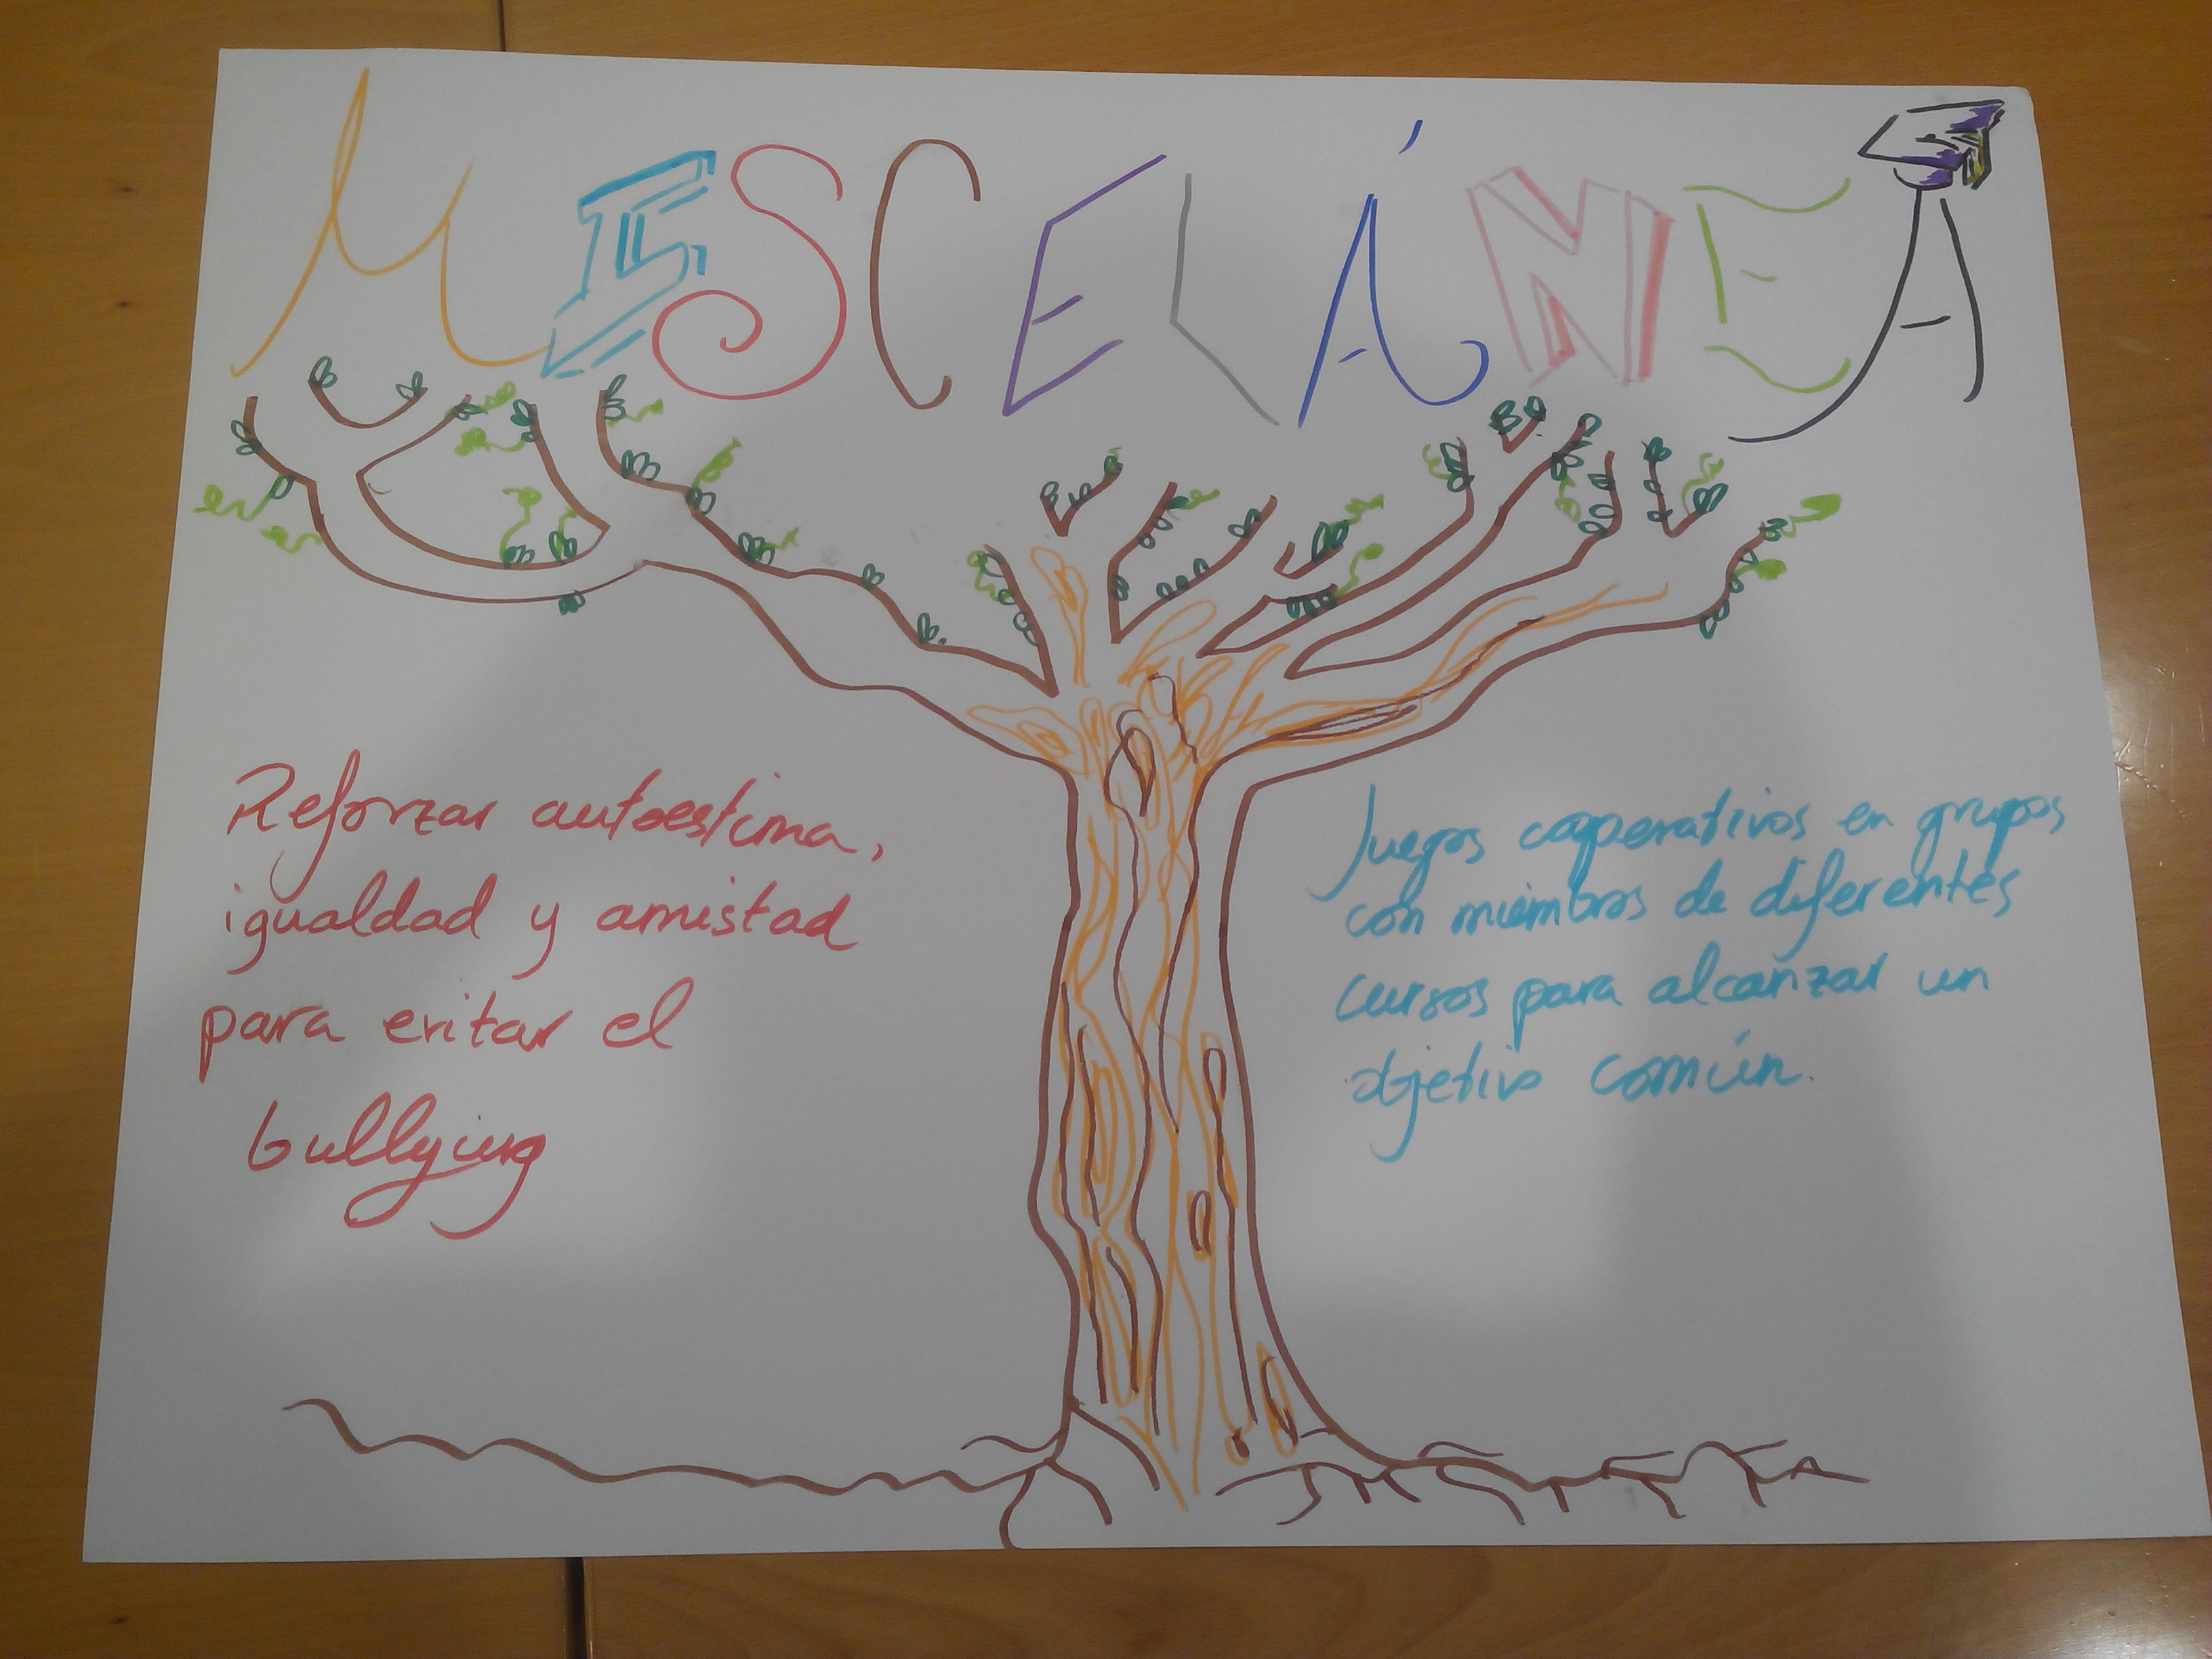 MESCELÁNEA
Reforzar autoestima,
igualdad y amistad
para evitar el
bullying
Juegos cooperativos en grupos
con miembros de diferentes
cursos para alcanzar un
objetivo común.